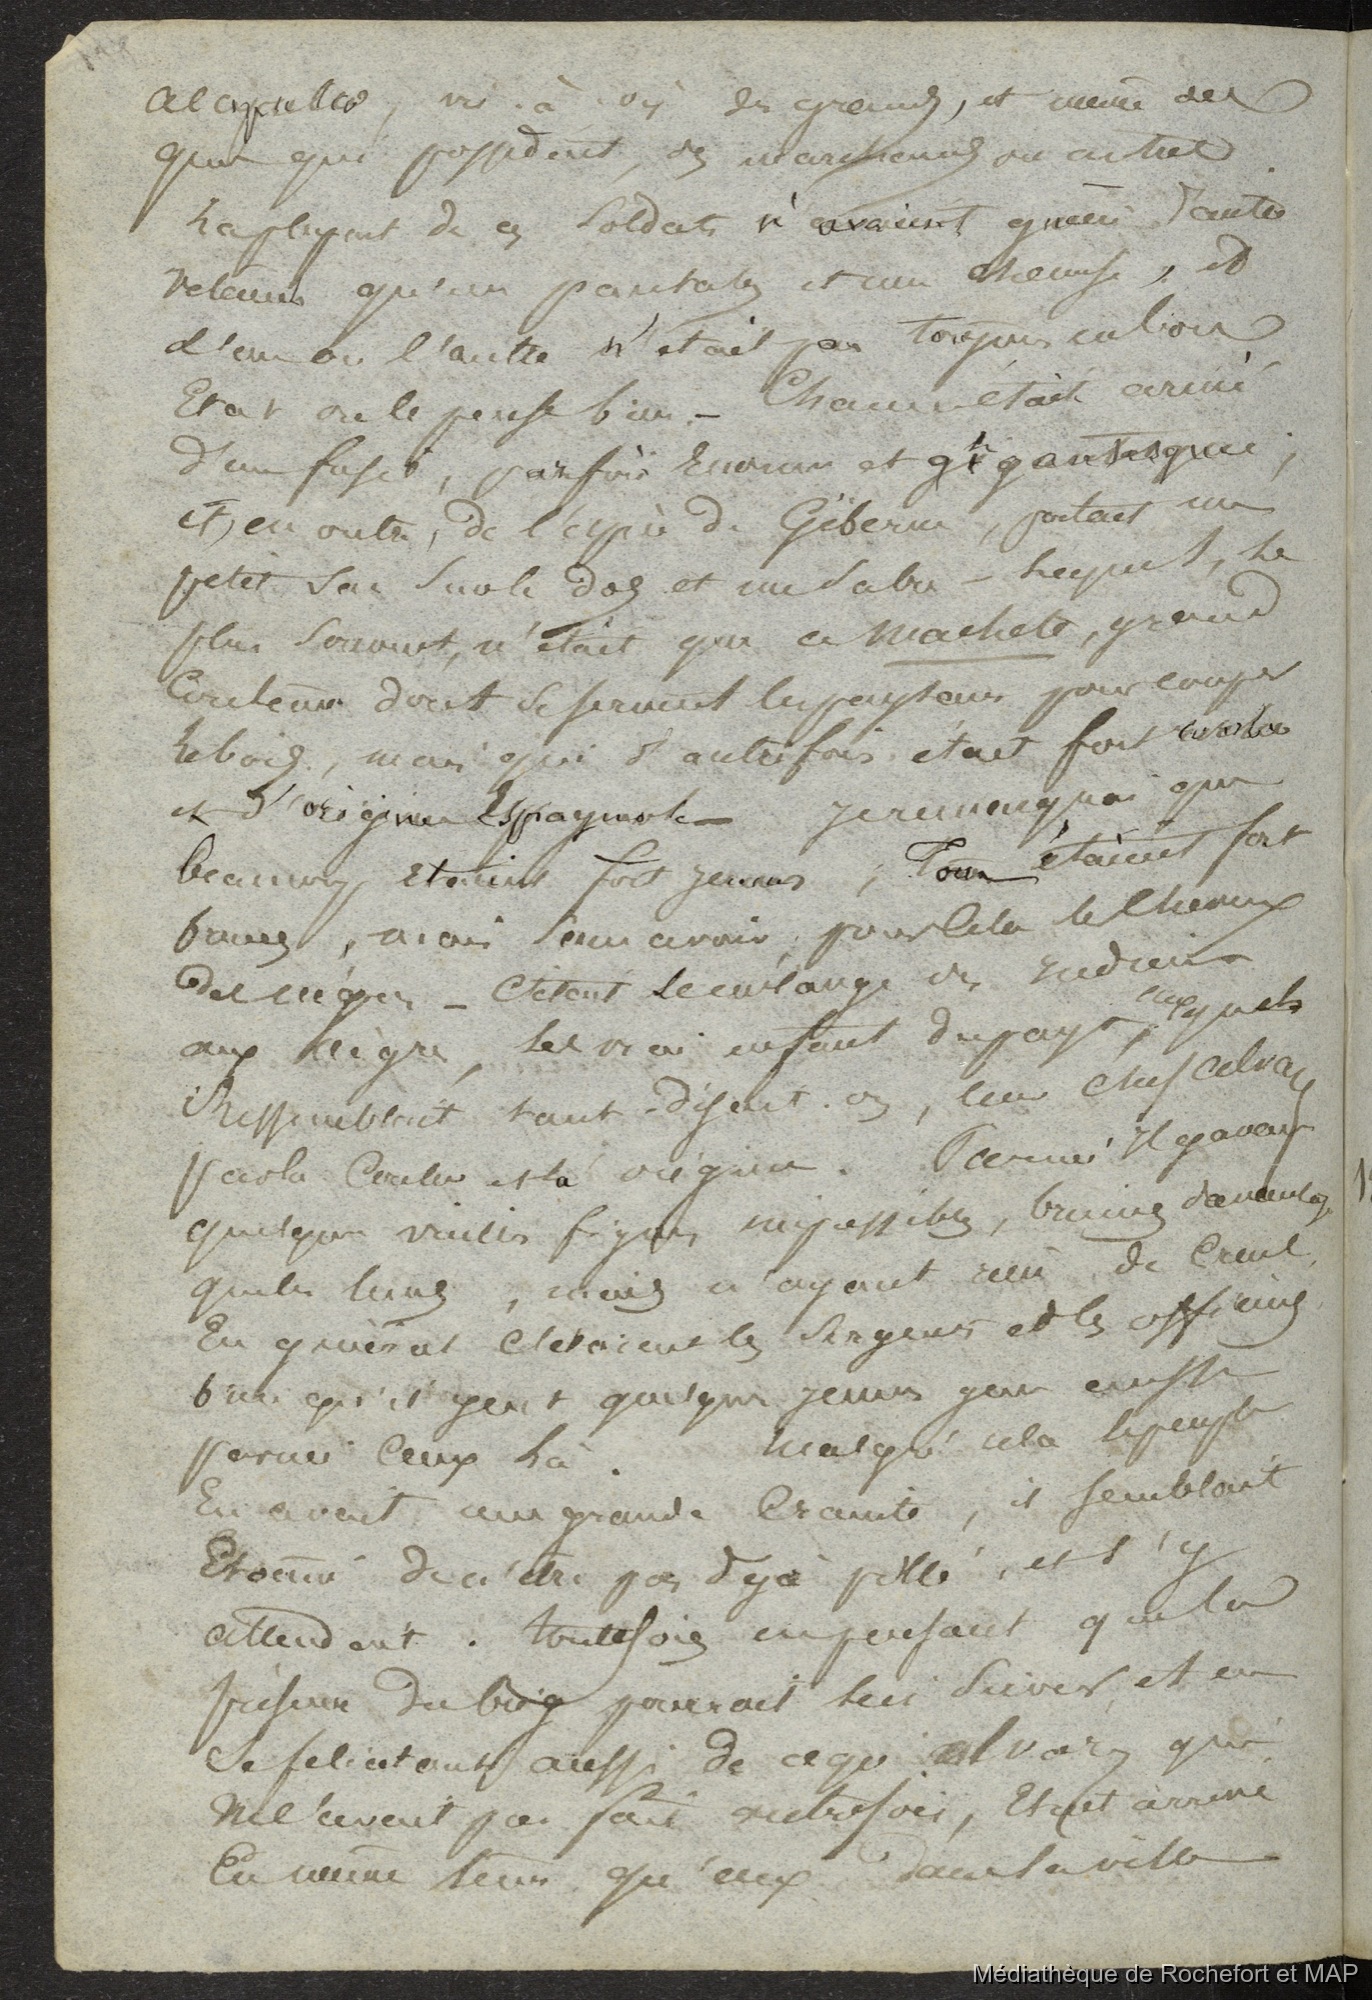 Alcapulco, vis à vis des grands, et même des
gens qui possèdent, des marchands ou autres
La plupart de ces soldats n'avaient guère d'autres
vetemens qu'un pantalon et une chemise, et
l'un ou l'autre n'était pas toujours en bon
Etat on le pense bien – Chacun était armé
d'un fusil, parfois enorme et gigantesque,
et, en outre, de l'espèce de Giberne, portait un
petit sac sur le dos et un sabre – lequel, le
plus souvent, n'était que ce machete, grand
Couteau dont se servent les paysans pour couper
le bois, mais qui d'autrefois était fort
et d'origine Espagnole – Je remarquai que
beaucoup etaient fort jeunes, Tous étaient fort
bruns, mais sans avoir, pour cela les cheveux
des nègres – C'était le mélange des Indiens
aux nègres, les vrais enfants du pays, auxquels
Ressemblait tant disent-on, leur chef Alvarez
par la Couleur et l'origine. Parmi Il y avait
quelques vieilles figures impassibles, brunes davantage
que les leurs, mais n'ayant rien de Cruel.
En général C'étaient les Sergens et les officiers
bien qu'il y eut quelques jeunes gens aussi
parmi Ceux là. Malgré cela le peuple
En avait une grande Crainte, il semblait
Etonné de n'être pas déjà pillé, et s'y
attendait. Toutefois en pensant que la
du bois pourrait leur Servir, et en
se felicitant aussi de ce que Alvarez qui
ne l'avait pas fait autrefois, Etait arrivé
En même tems qu'eux dans la ville
Médiathèque de Rochefort et MAP